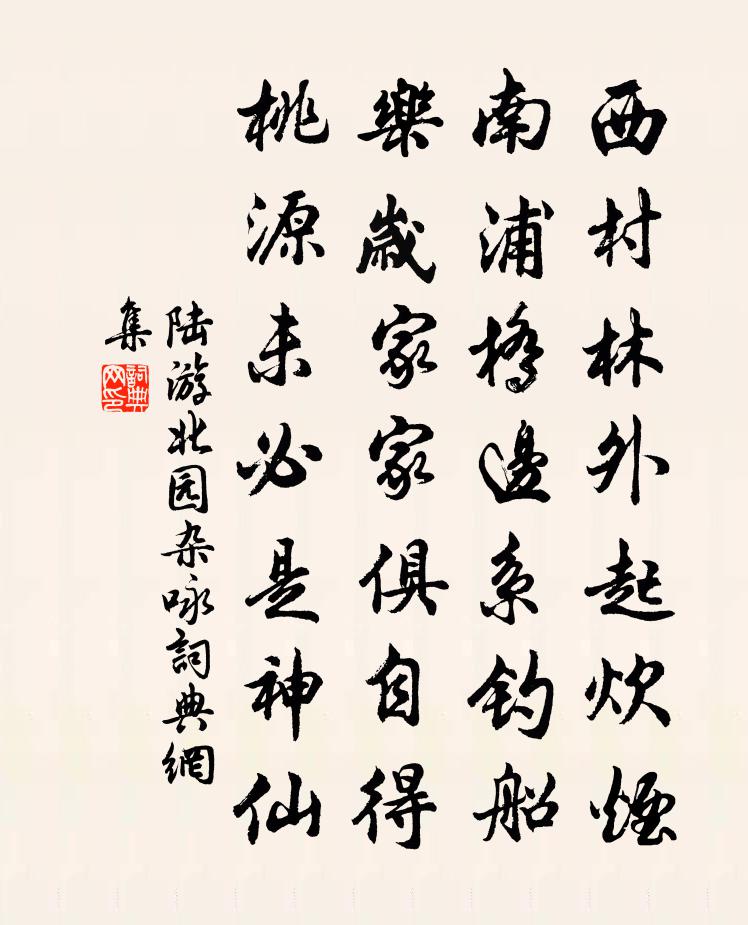 西村林外起炊煙
南浦橋邊系钓船
樂歲家家俱自得
桃源未必是神仙
陆游北园杂咏詞典網
集
詞典
网印